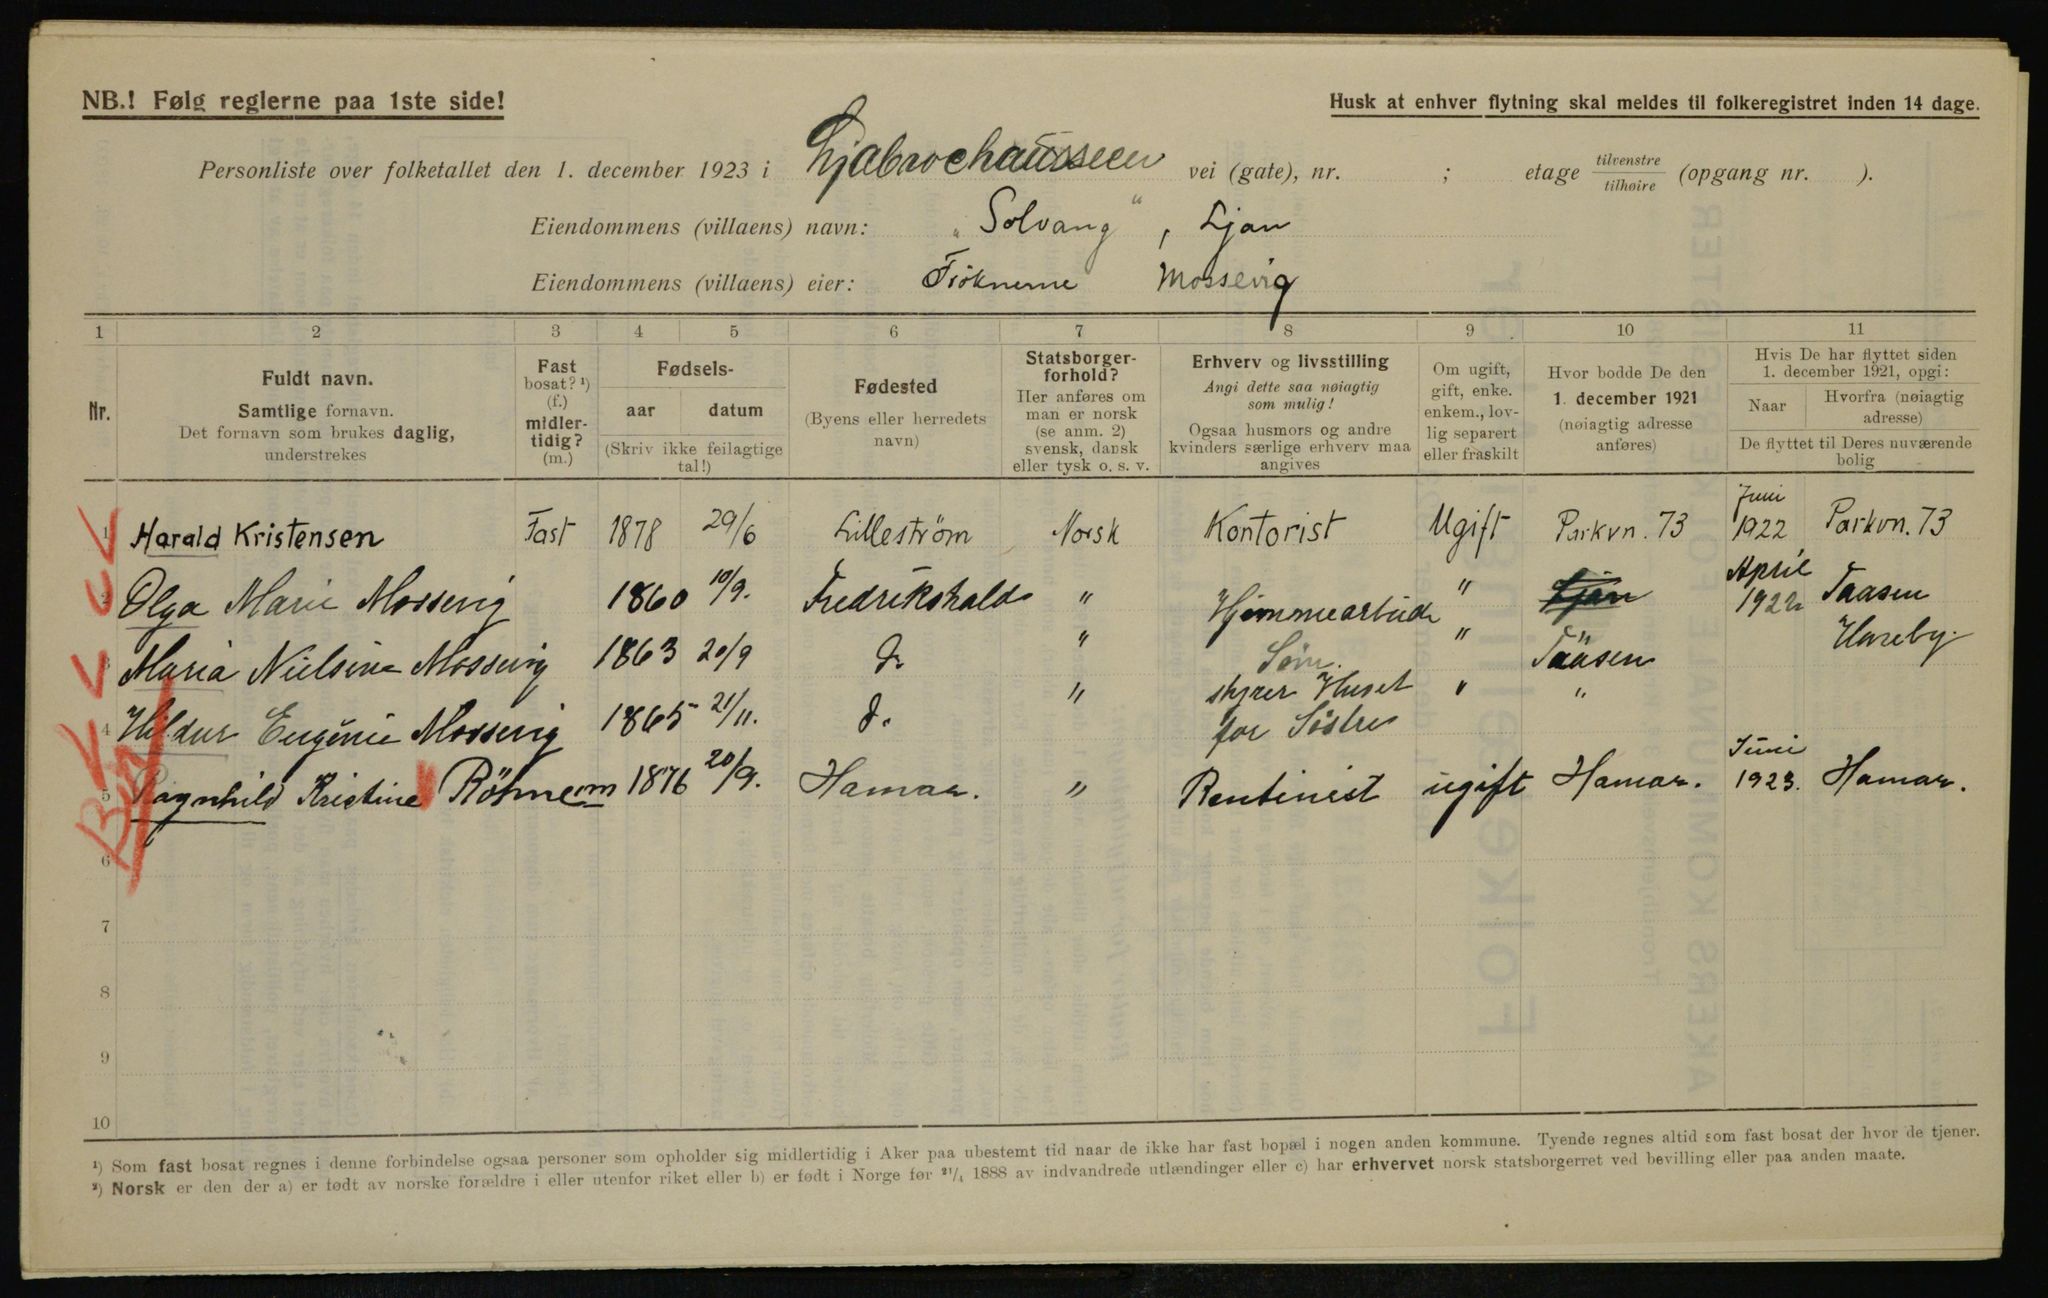 NB.! Følg reglerne paa 1ste side!
Husk at enhver flytning skal meldes til folkeregistret inden 14 dage.
Personliste over folketallet den 1. december 1923 i Ljabrochausseen vei (gate), nr. ; etage tilvenstre/tilhøire (opgang nr. ).
Eiendommens (villaens) navn: „Solvang“, Ljan
Eiendommens (villaens) eier: Frøknerne Mossevig
1 2 3 4 5 6 7 8 9 10 11
Nr.
Fuldt navn.
Samtlige fornavn.
Det fornavn som brukes daglig,
understrekes
Fast
bosat? ¹)
(f.)
midler-
tidig?
(m.)
Fødsels-
aar datum
(Skriv ikke feilagtige
tal!)
Fødested
(Byens eller herredets
navn)
Statsborger-
forhold?
Her anføres om
man er norsk
(se anm. 2)
svensk, dansk
eller tysk o. s. v.
Erhverv og livsstilling
Angi dette saa nøiagtig
som mulig!
Ogsaa husmors og andre
kvinders særlige erhverv maa
angives
Om ugift,
gift, enke.
enkem., lov-
lig separert
eller fraskilt
Hvor bodde De den
1. december 1921
(nøiagtig adresse
anføres)
Hvis De har flyttet siden
1. december 1921, opgi:
Naar
Hvorfra (nøiagtig
adresse)
De flyttet til Deres nuværende
bolig
1 Harald Kristensen Fast 1878 29/6 Lilleström Norsk Kontorist Ugift Parkvn. 73 Juni 1922 Parkvn. 73
2 Olga Marie Mossevig 1860 10/9. Fredrikshald " Hjemmearbeide " Ljan April 1922 Taasen
3 Maria Nielsine Mossevig 1863 20/9 do " Søm. " Taasen Haveby.
4 Hildur Eugénie Mossevig 1865 21/11. do " styrer Huset " "
for Søstre
5 Ragnhild Kristine 1876 20/9. Hamar. " Rentinist ugift Hamar. Juni 1923. Hamar.
6
7
8
9
10
¹) Som fast bosat regnes i denne forbindelse ogsaa personer som opholder sig midlertidig i Aker paa ubestemt tid naar de ikke har fast bopæl i nogen anden kommune. Tyende regnes altid som fast bosat der hvor de tjener.
²) Norsk er den der a) er født av norske forældre i eller utenfor riket eller b) er født i Norge før ²¹/₄ 1888 av indvandrede utlændinger eller c) har erhvervet norsk statsborgerret ved bevilling eller paa anden maate.